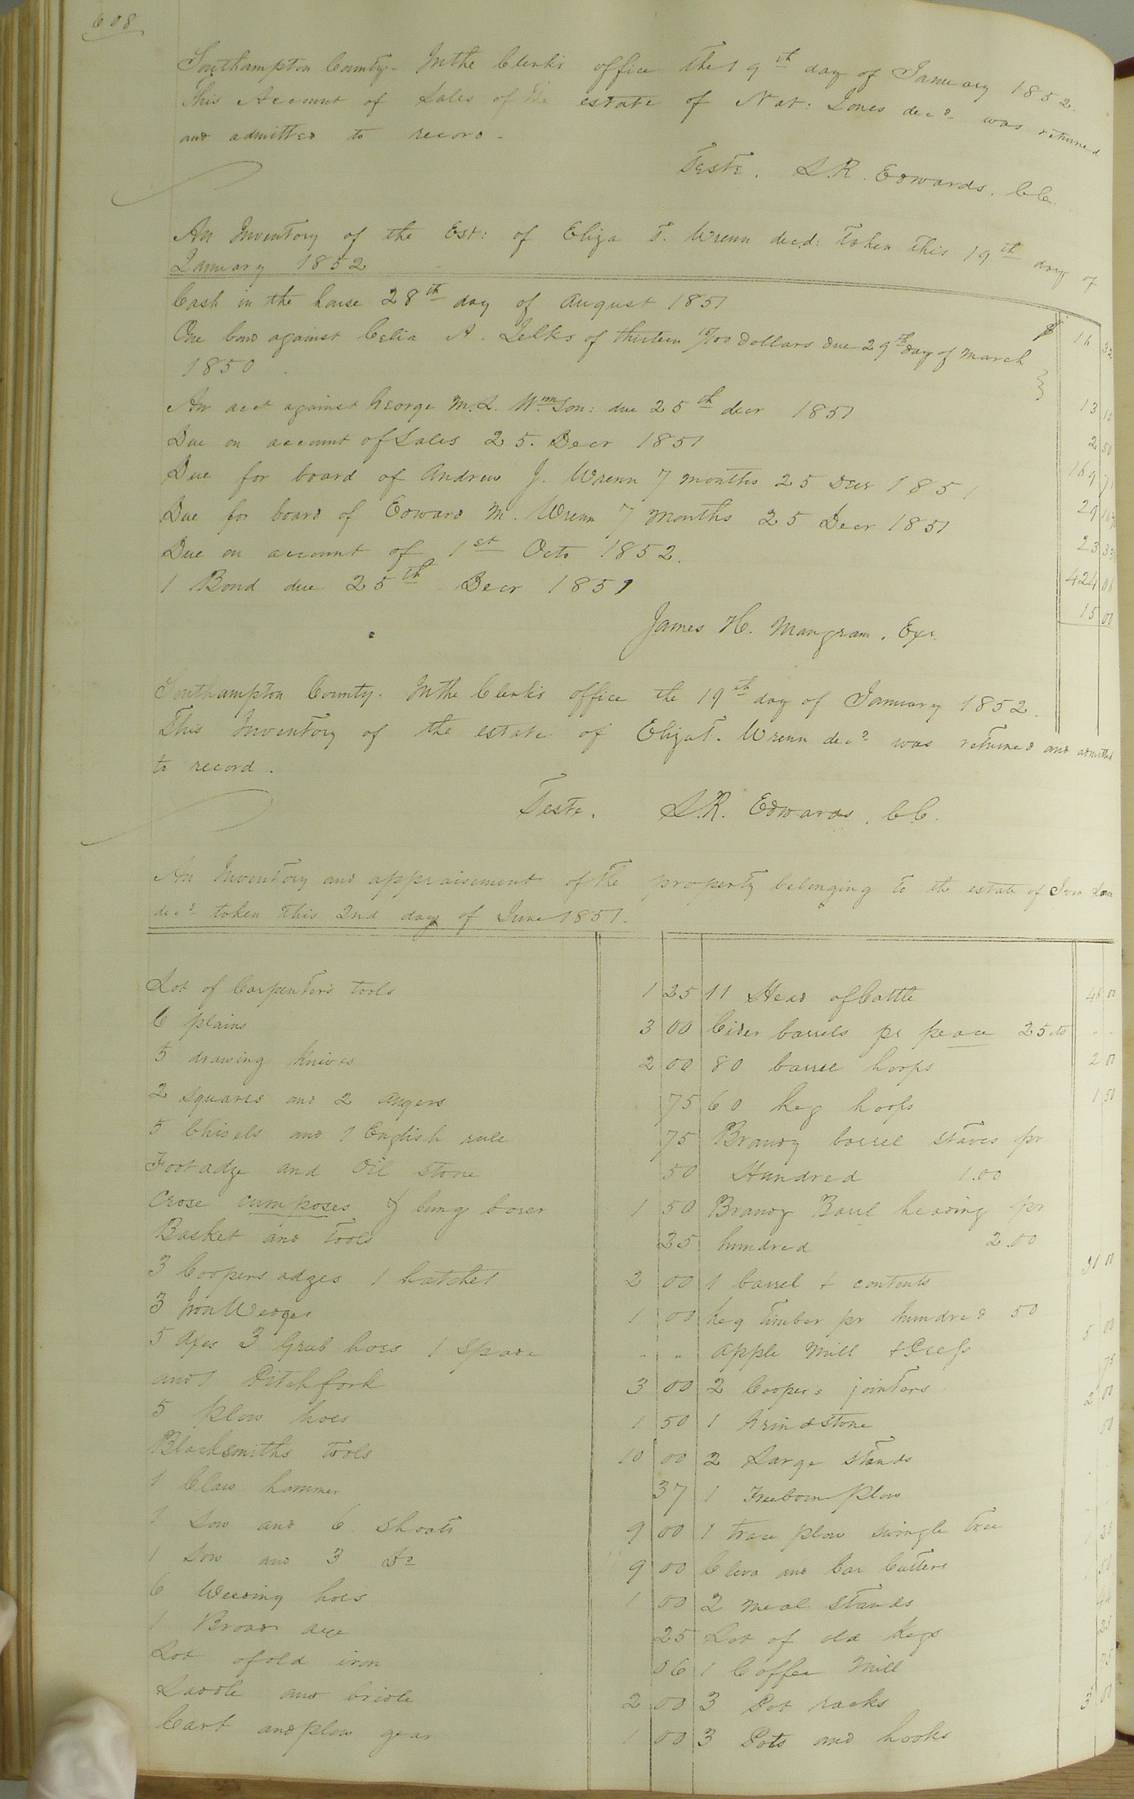 608
Southampton County. In the Clerk's office the 19th day of January 1852.
This Account of Sales of the estate of Nat: Jones decd was returned
and admitted to record.
Teste. L.R. Edwards. CC.
An Inventory of the Est: of Eliza T. Wrenn decd: taken this 19th day of
January 1852
Cash in the house 28th day of August 1851 $ 16 32
One bond against Celia A. of thirteen Dollars due 29th day of March
1850 13
An acct against George M.L. Wmson: due 25th decr 1851 2 50
Due on account of Sales 25. Decr 1851
Due for board of Andrew J. Wrenn 7 months 25 Decr 1851 29
Due for board of Edward M. Wrenn 7 months 25 Decr 1851 23 33
Due on account of 1st Octo 1852. 424
1 Bond due 25th Decr 1851 15 00
James H. Mangram. Exr.
Southampton County. In the Clerk's office the 19th day of January 1852.
This Inventory of the estate of Eliza T. Wrenn decd was returned and admitted
to record.
Teste. L.R. Edwards, CC.
An Inventory and appraisement of the property belonging to the estate of
decd taken this 2nd day of June 1851.
Lot of Carpenters tools 1 25
6 plains 3 00
5 drawing knives 2 00
2 squares and 2 augers 75
5 Chisels and 1 English rule 75
Foot adze and Oil stone 50
Crose cumposes & bung borer 1 50
Basket and tools 25
3 Coopers adzes 1 hatchet 2 00
3 Iron Wedges 1 00
5 Axes 3 Grub hoes 1 Spade
and 1 Pitchfork 3 00
5 plow hoes 1 50
Blacksmiths tools 10 00
1 Claw hammer 37
1 Sow and 6 shoats 9 00
1 Sow and 3 Do 9 00
6 Weeding hoes 1 00
1 Broad axe 25
Lot of old iron 06
Saddle and bridle 2 00
Cart and plow gear 1 00
11 Head of Cattle
Cider barrels pr peace 25 cts
80 barrel hoops 2 00
60 keg hoops 1 50
Brandy barrel staves pr
Hundred 1.00
Brandy Barrel heading pr
hundred 2.00
1 barrel & contents
keg timber pr hundred 50
Apple Mill & Press 5 00
2 Coopers jointers 75
1 Grindstone 2 00
2 Large stands
1 Freeborn Plow
1 trace plow swingle tree
and Cutters
2 meal stands
Lot of old kegs 25
1 Coffee Mill
3 Pot racks
3 Pots and hooks